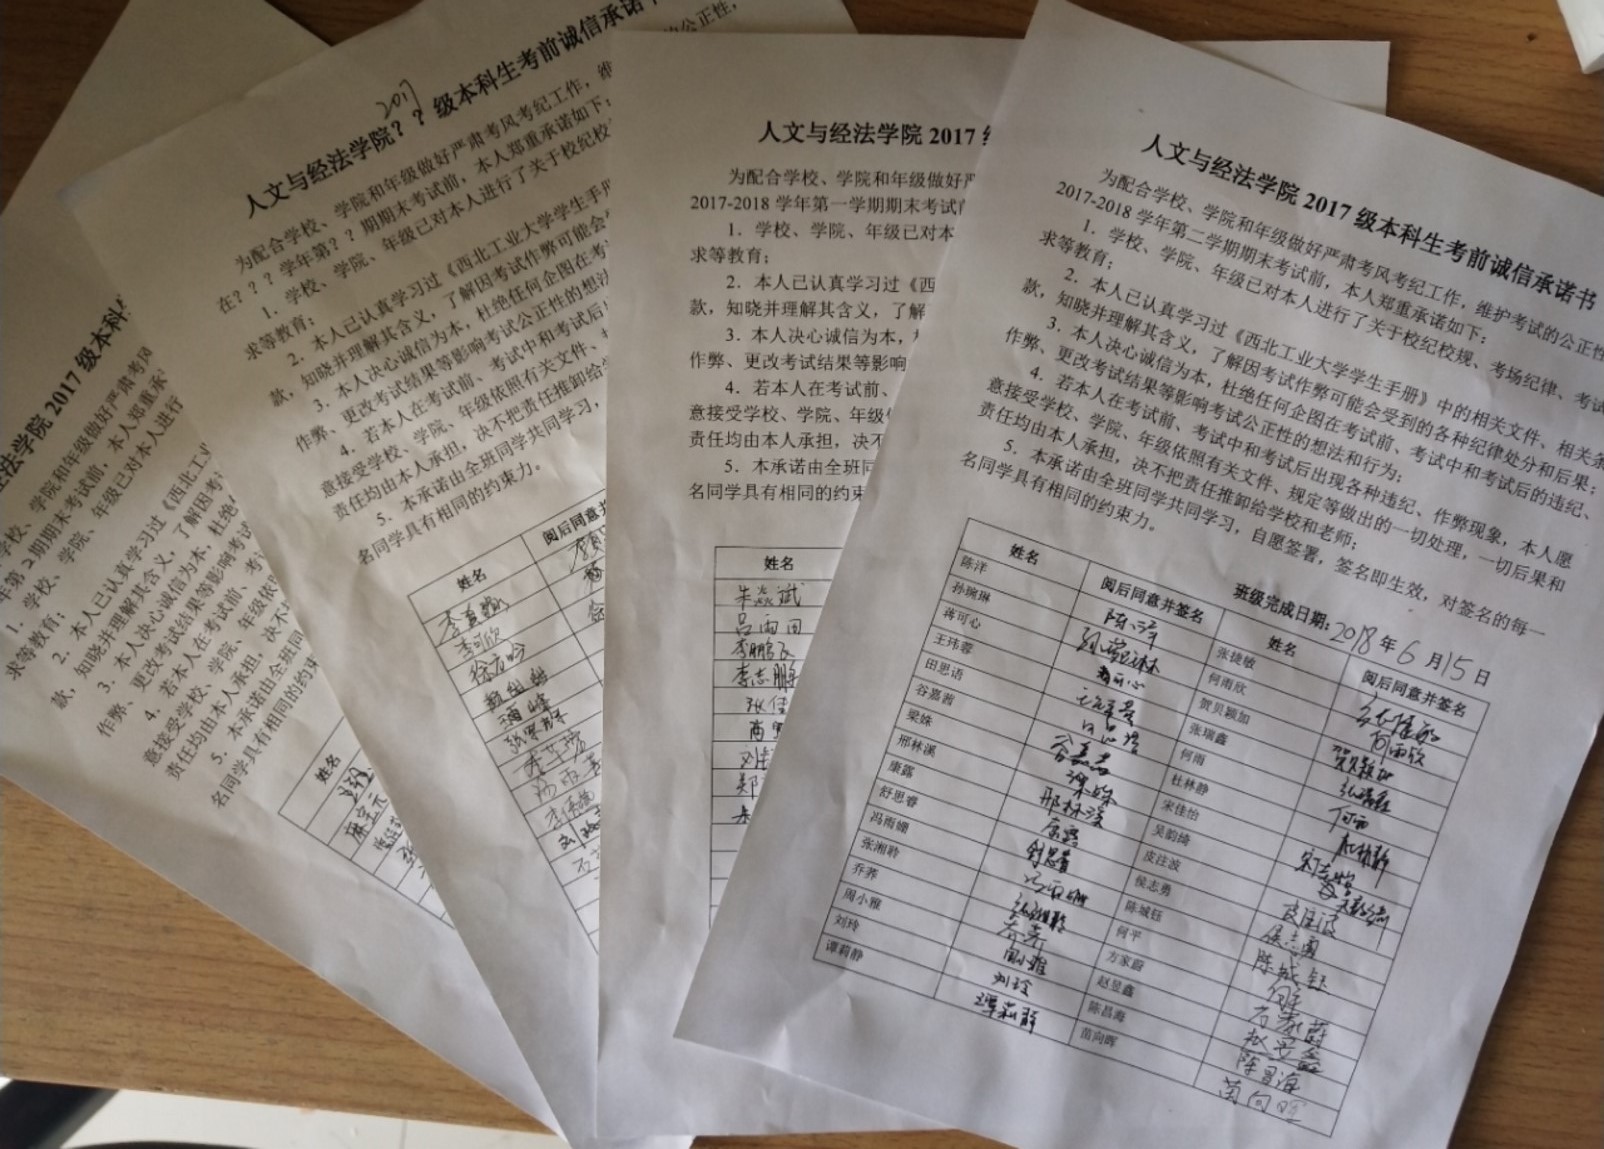 人文与经法学院 2017 级本科生考前诚信承诺书
为配合学校、学院和年级做好严肃考风考纪工作，维护考试的公正性
2017-2018 学年第二学期期末考试前，本人郑重承诺如下：
1．学校、学院、年级已对本人进行了关于校纪校规、考场纪律、考试
求等教育；
2．本人已认真学习过《西北工业大学学生手册》中的相关文件、相关条
款，知晓并理解其含义，了解因考试作弊可能会受到的各种纪律处分和后果；
3．本人决心诚信为本，杜绝任何企图在考试前、考试中和考试后的违纪、
作弊、更改考试结果等影响考试公正性的想法和行为；
4．若本人在考试前、考试中和考试后出现各种违纪、作弊现象，本人愿
意接受学校、学院、年级依照有关文件、规定等做出的一切处理，一切后果和
责任均由本人承担，决不把责任推卸给学校和老师；
5．本承诺由全班同学共同学习，自愿签署，签名即生效，对签名的每一
名同学具有相同的约束力。
班级完成日期：2018 年 6 月 15 日
姓名 阅后同意并签名 姓名 阅后同意并签名
陈洋 陈洋 张捷敏 张捷敏
孙琬琳 孙琬琳 何雨欣 何雨欣
蒋可心 蒋可心 贺贝颖加
王玮蓉 王玮蓉 张瑞鑫 张瑞鑫
田思语 田思语 何雨 何雨
谷嘉茜 谷嘉茜 杜林静 杜林静
梁姝 梁姝 宋佳怡 宋佳怡
邢林溪 邢林溪 吴韵绮 吴韵绮
康露 康露 皮注波 皮注波
舒思睿 舒思睿 侯志勇 侯志勇
冯雨姗 冯雨姗 陈城钰 陈城钰
张湘聆 张湘聆 何平 何平
乔荞 乔荞 方家蔚 方家蔚
周小雅 周小雅 赵昱鑫 赵昱鑫
刘玲 刘玲 陈昌海 陈昌海
谭莉静 谭莉静 苗向晖 苗向晖
人文与经法学院 2017
为配合学校、学院和年级做好严
2017-2018 学年第一学期期末考试前
1．学校、学院、年级已对本
求等教育；
2．本人已认真学习过《西
款，知晓并理解其含义，了解
3．本人决心诚信为本，
作弊、更改考试结果等影响
4．若本人在考试前、
意接受学校、学院、年级
责任均由本人承担，决不
5．本承诺由全班同
名同学具有相同的约束
姓名
朱焱斌
吕雨田
李鹏飞
李志鹏
张佳
2017
人文与经法学院？？级本科生考前诚信承诺
为配合学校、学院和年级做好严肃考风考纪工作，维
公正性，
在？？？学年第？？期期末考试前，本人郑重承诺如下：
1．学校、学院、年级已对本人进行了关于校纪校
求等教育；
2．本人已认真学习过《西北工业大学学生手册
款，知晓并理解其含义，了解因考试作弊可能会
3．本人决心诚信为本，杜绝任何企图在考
作弊、更改考试结果等影响考试公正性的想法
4．若本人在考试前、考试中和考试后
意接受学校、学院、年级依照有关文件、
责任均由本人承担，决不把责任推卸给
5．本承诺由全班同学共同学习，
名同学具有相同的约束力。
姓名 阅后同意并
李可欣
徐方吟
法学院 2017 级本科
学校、学院和年级做好严肃考风
年第 2 期期末考试前，本人郑重承
1．学校、学院、年级已对本人进行
求等教育；
2．本人已认真学习过《西北工
款，知晓并理解其含义，了解因考
3．本人决心诚信为本，杜绝
作弊、更改考试结果等影响考试
4．若本人在考试前、考
意接受学校、学院、年级依
责任均由本人承担，决不
5．本承诺由全班同
名同学具有相同的约束
姓名